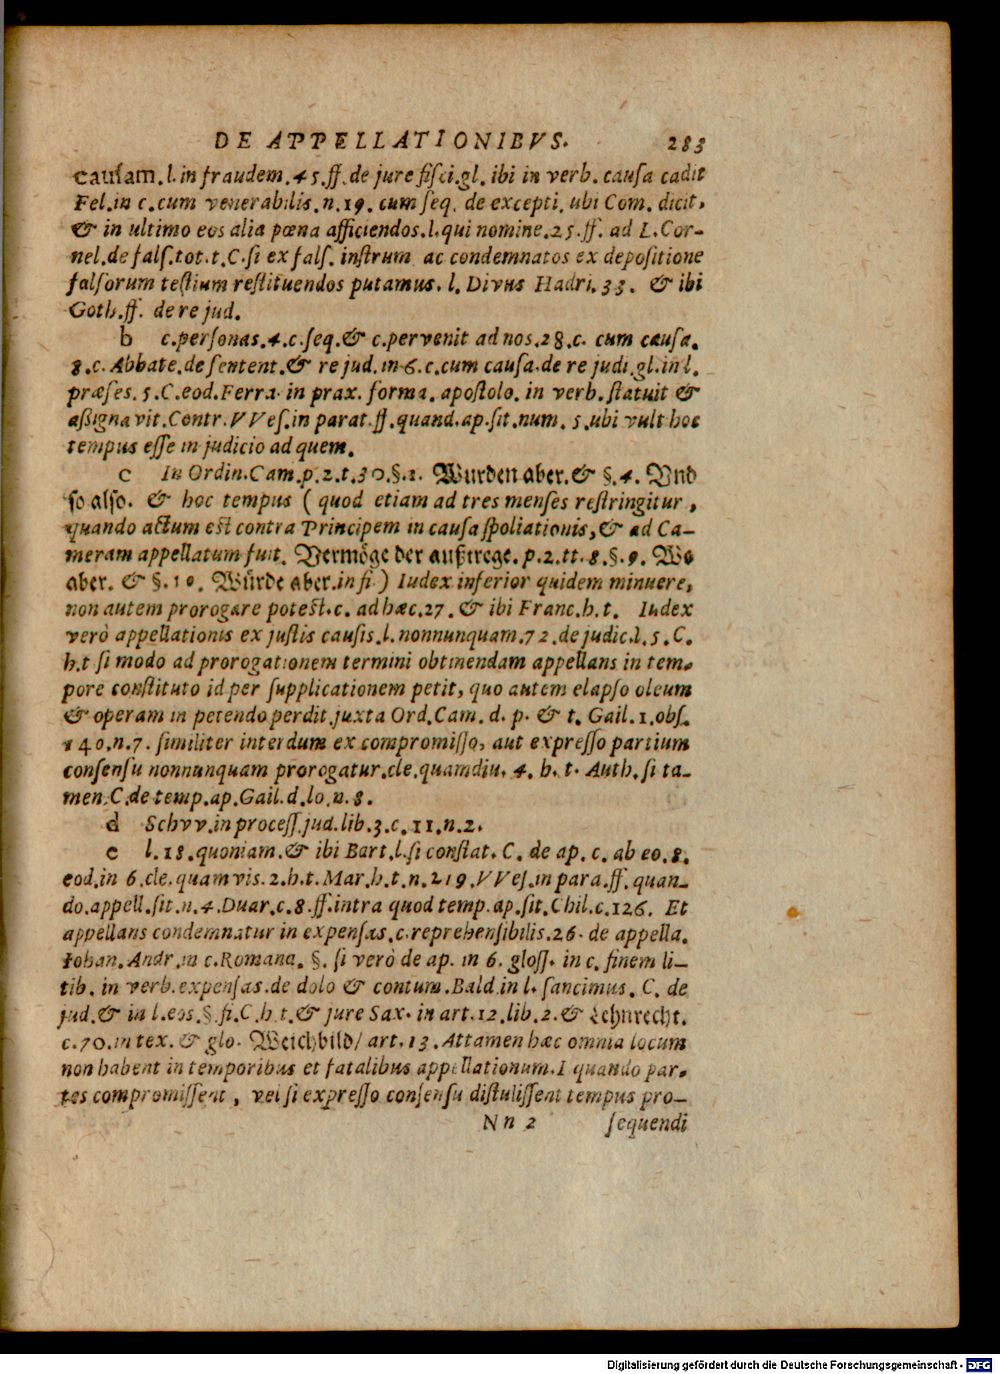 DE APPELLATIONIBVS. 283
causam. l. in fraudem. 45. ff. de jure fisci. gl. ibi in verb. causa cadit
Fel. in c. cum venerabilis. n. 19. cum seq. de excepti. ubi Com. dicit,
& in ultimo eos alia pœna afficiendos. l. qui nomine. 25. ff. ad L. Cor-
nel. de fals. tot. t. C. si ex fals. instrum ac condemnatos ex depositione
falsorum testium restituendos putamus. l. Divus Hadri. 33. & ibi
Goth. ff. de re jud.
b c. personas. 4. c. seq. & c. pervenit ad nos. 28. c. cum causa.
8. c. Abbate. de sentent. & re jud. in 6. c. cum causa. de re judi. gl. in l.
præses. 5. C. eod. Ferra. in prax. forma. apostolo. in verb. statuit &
aßignavit. Contr. VVes. in parat. ff. quand. ap. sit. num. 5. ubi vult hoc
tempus esse in judicio ad quem.
c In Ordin. Cam. p. 2. t. 30. §. 1. Wurden aber. & §. 4. Vnd
so also. & hoc tempus ( quod etiam ad tres menses restringitur,
quando actum est contra Principem in causa spoliationis, & ad Ca-
meram appellatum fuit. Vermöge der außtrege. p. 2. tt. 8. §. 9. Wo
aber. & §. 10. Würde aber. in fi ) Iudex inferior quidem minuere,
non autem prorogare potest. c. ad hæc. 27. & ibi Franc. h. t. Iudex
verò appellationis ex justis causis. l. nonnunquam. 72. de judic. l. 5. C.
h. t si modo ad prorogationem termini obtinendam appellans in tem-
pore constituto id per supplicationem petit, quo autem elapso oleum
& operam in petendo perdit. juxta Ord. Cam. d. p. & t. Gail. 1. obs.
140. n. 7. similiter interdum ex compromisso, aut expresso partium
consensu nonnunquam prorogatur. cle. quamdiu. 4. h. t. Auth. si ta-
men. C. de temp. ap. Gail. d. lo. n. 8.
d Schvv. in process. jud. lib. 3. c. 11. n. 2.
e l. 18. quoniam. & ibi Bart. l. si constat. C. de ap. c. ab eo. 8.
eod. in 6. cle. quamvis. 2. h. t. Mar. h. t. n. 219. VVes. in para. ff. quan-
do. appell. sit. n. 4. Duar. c. 8. ff. intra quod temp. ap. sit. Chil. c. 126. Et
appellans condemnatur in expensas. c. reprehensibilis. 26. de appella.
Iohan. Andr. in c. Romana. §. si verò de ap. in 6. gloss. in c. finem li-
tib. in verb. expensas. de dolo & contum. Bald. in l. sancimus. C. de
jud. & in l. eos. §. fi. C. h. t. & jure Sax. in art. 12. lib. 2. & Lehnrecht.
c. 70. in tex. & glo. Weichbild/ art. 13. Attamen hæc omnia locum
non habent in temporibus et fatalibus appellationum. I quando par-
tes compromissent, vel si expresso consensu distulissent tempus pro-
Nn 2 sequendi
Digitalisierung gefördert durch die Deutsche Forschungsgemeinschaft - DFG